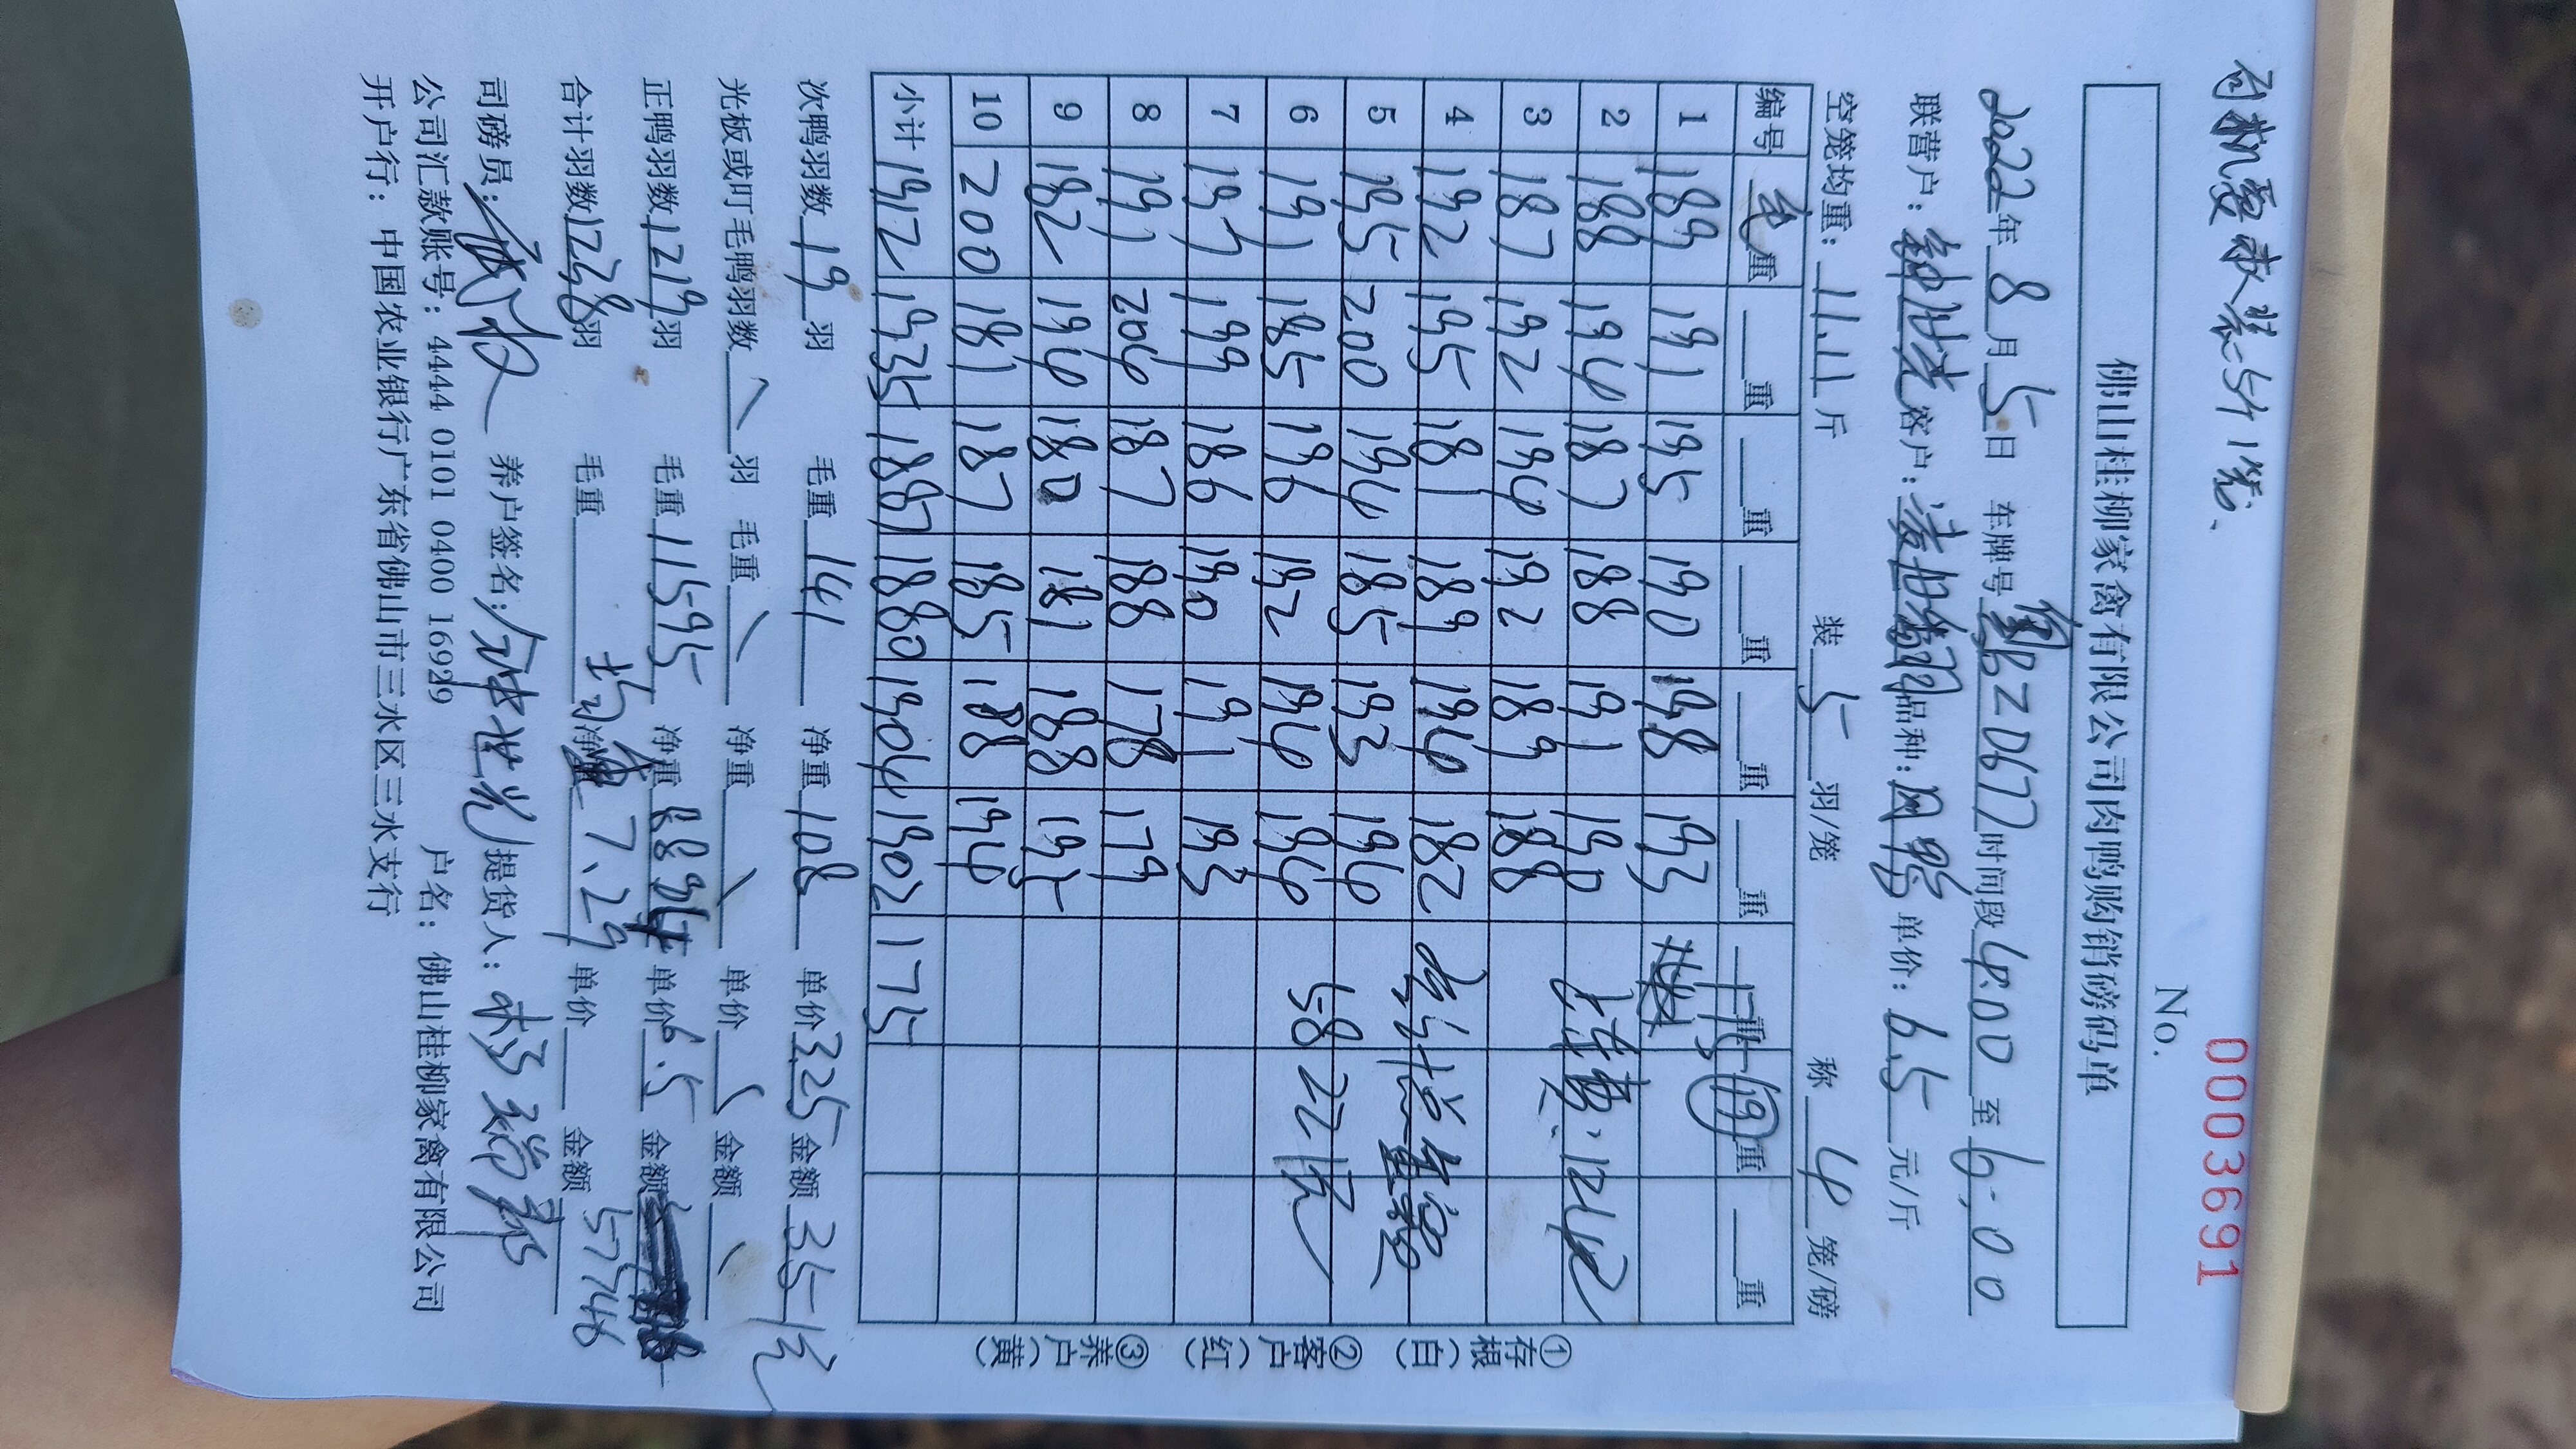 司机要求装5羽1笼、
No. 0003691
佛山桂柳家禽有限公司肉鸭购销磅码单
2022年8月5日 车牌号粤EZD677时间段4:00至6:00
联营户:钟世光 客户: 品种: 单价:6.5元/斤
空笼均重:11.11斤 装5羽/笼 称4笼/磅
编号 毛重 重 重 重 重 重 重 19重 重
1 189 191 195 190 198 193
2 188 194 187 188 191 190
3 187 192 194 192 189 188
4 192 195 181 189 194 182
5 195 200 194 185 193 194
6 191 185 196 192 194 194
7 197 199 186 190 191 193
8 191 204 187 188 178 179
9 182 194 180 181 188 195
10 200 181 187 185 188 194
小计 1912 1935 1887 1880 1904 1902 175
124元
58221元
①存根(白) ②客户(红) ③养户(黄)
次鸭羽数19羽 毛重141 净重108 单价3.25金额351元
光板或叮毛鸭羽数 羽 毛重 净重 单价 金额
正鸭羽数1219羽 毛重11595 净重8894 单价6.5 金额
合计羽数1238羽 毛重 均重7.29 单价 金额57746
司磅员: 养户签名:钟世光 提货人:
公司汇款账号:4444 0101 0400 16929 户名:佛山桂柳家禽有限公司
开户行:中国农业银行广东省佛山市三水区三水支行